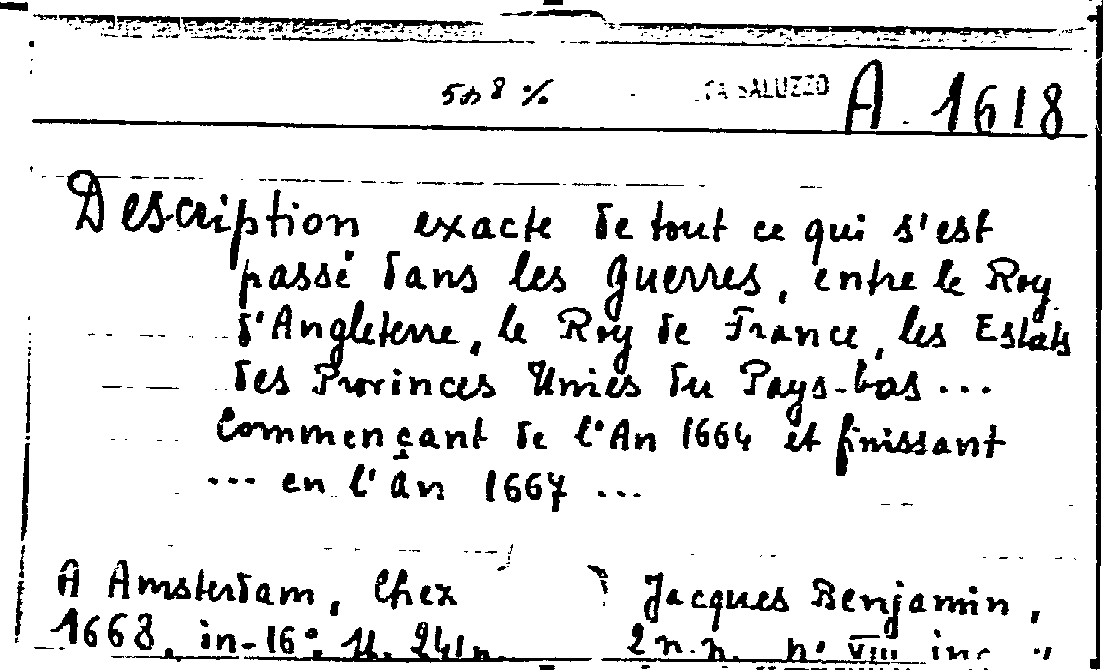 SALUZZO A. 1618
Description exacte de tout ce qui s'est
passé dans les guerres, entre le Roy
d'Angleterre, le Roy de France, les Estats
des Provinces Unies du Pays-bas ...
Commençant de l'An 1664 et finissant
... en l'An 1667 ...
A Amsterdam, Chez Jacques Benjamin,
1668, in-16°. 2 n.n. n° VIII inc